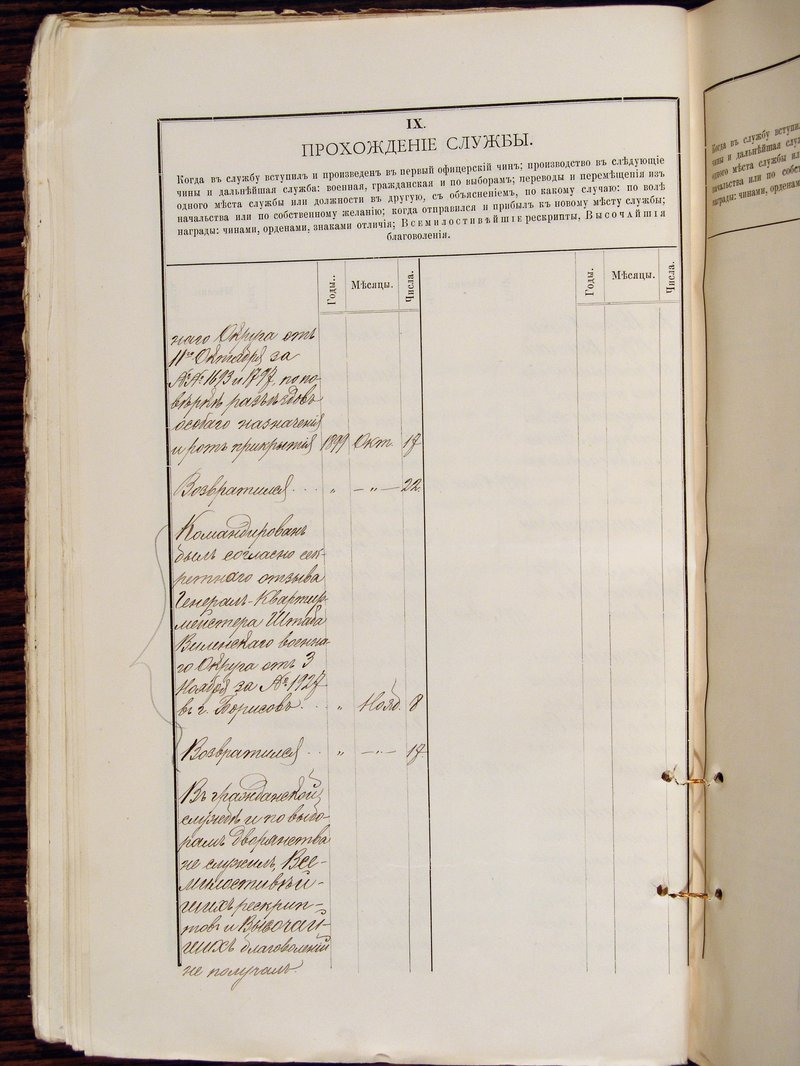 IX.
ПРОХОЖДЕНІЕ СЛУЖБЫ.
Когда въ службу вступилъ и произведенъ въ первый офицерскій чинъ; производство въ слѣдующіе
чины и дальнѣйшая служба: военная, гражданская и по выборамъ; переводы и перемѣщенія изъ
одного мѣста службы или должности въ другую, съ объясненіемъ, по какому случаю: по волѣ
начальства или по собственному желанію; когда отправился и прибылъ къ новому мѣсту службы;
награды: чинами, орденами, знаками отличія; Всемилостивѣйшіе рескрипты, Высочайшія
благоволенія.
Годы.. Мѣсяцы. Числа. Годы. Мѣсяцы. Числа.
наго Округа отъ
11го Октября за
№№ 1693 и 1797, по по-
вѣркѣ разъѣздовъ
особаго назначенія
и ротъ прикрытія 1899 Окт. 17
Возвратился . . . „ — „ — 22.
Командированъ
былъ согласно сек-
ретнаго отзыва
Генералъ-Квартир-
мейстера Штаба
Виленскаго военна-
го Округа отъ 3
Ноября за № 1927
въ г. Борисовъ . . „ Нояб. 8
Возвратился . . „ — „ — 17.
Въ гражданской
службѣ и по выбо-
рамъ Дворянства
не служилъ, Все-
милостивѣй-
шихъ рескрип-
товъ и Высочай-
шихъ благоволеній
не получалъ.
Когда въ службу вступи
чины и дальнѣйшая слу
одного мѣста службы ил
начальства или по собст
награды: чинами, орденам